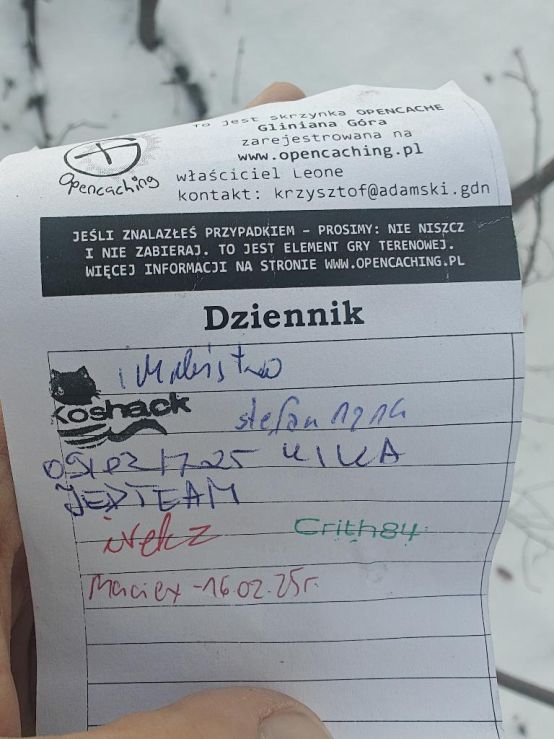 To jest skrzynka OPENCACHE
Gliniana Góra
zarejestrowana na
www.opencaching.pl
właściciel Leone
kontakt: krzysztof@adamski.gdn
Opencaching
JEŚLI ZNALAZŁEŚ PRZYPADKIEM – PROSIMY: NIE NISZCZ
I NIE ZABIERAJ. TO JEST ELEMENT GRY TERENOWEJ.
WIĘCEJ INFORMACJI NA STRONIE WWW.OPENCACHING.PL
Dziennik
i
Koshack stefan
KIKA
JEDTEAM
irekz Crith84
Maciex -16.02.25r.